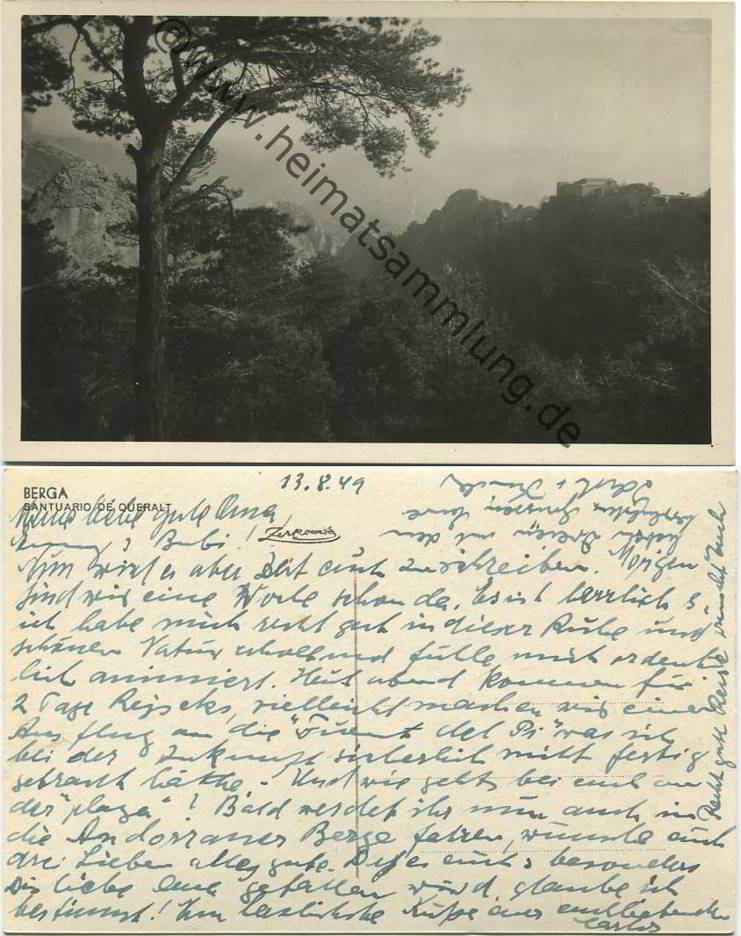 © www.heimatsammlung.de
BERGA
SANTUARIO DE QUERALT
13.8.49
Zerkowitz
liebe gute Oma,
Bubi!
Nun wird es aber Zeit euch zu schreiben. Morgen
sind wir eine Woche schon da. Es ist herrlich
ich habe mich recht gut in dieser Ruhe und
schönen Natur erholt und fühle mich ordent-
lich animiert. Heut abend kommen für
2 Tage vielleicht machen wir einen
Ausflug an die "Fuent del Pi" was ich
bei der Ankunft sicherlich nicht fertig
gebracht hätte. - Und wie gehts bei euch an
der "plaza"? Bald werdet ihr nun auch in
die Andorraner Berge fahren, wünsche euch
drei Lieben alles gute. Daß es euch besonders
Dir liebe gefallen wird, glaube ich
bestimmt! Küsse aus
Carlos
Recht gute Reise wünscht Euch